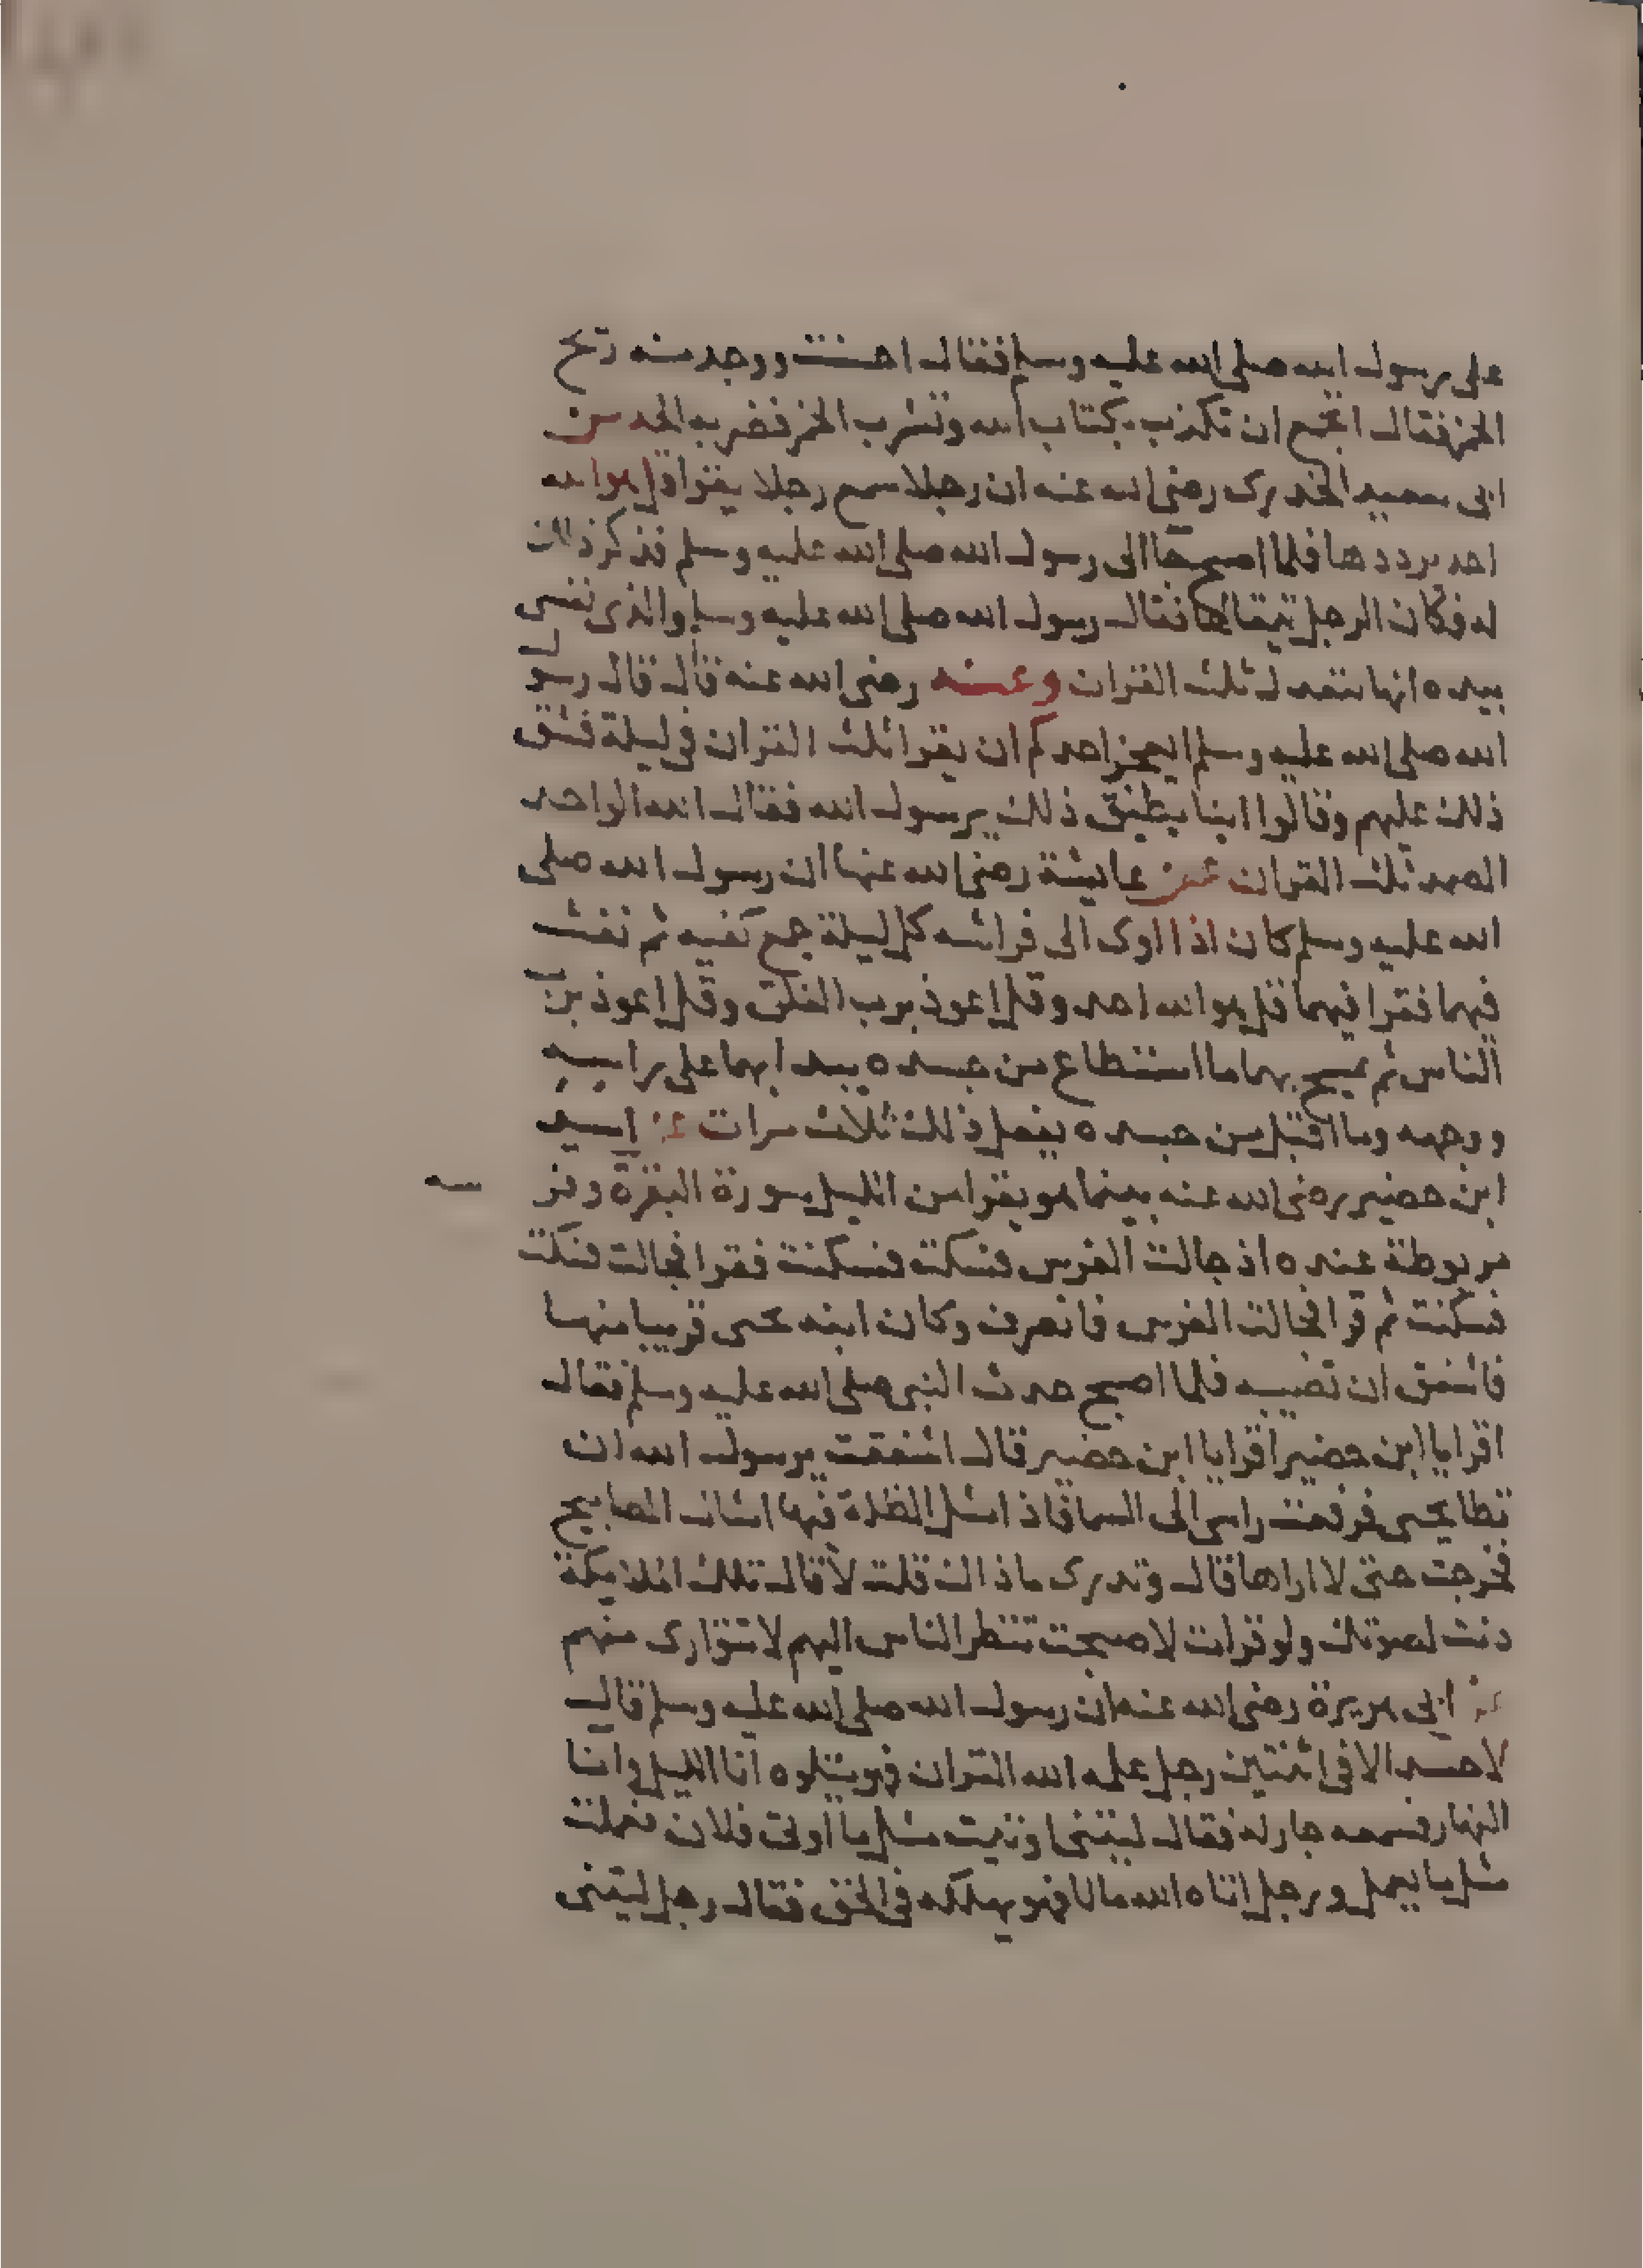 على رسول الله صلى الله عليه وسلم فقال احسنت ووجد منه ريح
الخمر فقال اتجمع ان تكذب بكتاب الله وتشرب الخمر فضربه الحد عن
ابى سعيد الخدرى رضى الله عنه ان رجلا سمع رجلا يقرا قل هو الله
احد يرددها فلما اصبح جا الى رسول الله صلى الله عليه وسلم فذكر ذلك
له فكان الرجل يتقالها فقال رسول الله صلى الله عليه وسلم والذى نفسى
بيده انها لتعدل ثلث القران وعنه رضى الله عنه قال قال رسول
الله صلى الله عليه وسلم ايعجز احدكم ان يقرا ثلث القران فى ليلة فشق
ذلك عليهم وقالوا اينا يطيق ذلك يرسول الله فقال الله الواحد
الصمد ثلث القران عن عايشة رضى الله عنها ان رسول الله صلى
الله عليه وسلم كان اذا اوى الى فراشه كل ليلة جمع كفيه ثم نفث
فيهما فقرا فيهما قل هو الله احد وقل اعوذ برب الفلق وقل اعوذ برب
الناس ثم يمسح بهما ما استطاع من جسده يبدا بهما على راسه
ووجهه وما اقبل من جسده يفعل ذلك ثلاث مرات عن اسيد
ابن حضير رضى الله عنه بينما هو يقرا من الليل سورة البقرة وفرسه
مربوطة عنده اذ جالت الفرس فسكت فسكنت فقرا فجالت فسكت
فسكنت ثم قرا فجالت الفرس فانصرف وكان ابنه يحيى قريبا منها
فاشفق ان تصيبه فلما اصبح حدث النبى صلى الله عليه وسلم فقال
اقرا يا ابن حضير اقرا يا ابن حضير قال اشفقت يرسول الله ان
تطا يحيى فرفعت راسى الى السما فاذا مثل الظلة فيها امثال المصابيح
فخرجت حتى لا اراها قال وتدرى ما ذاك قلت لا قال تلك الملايكة
دنت لصوتك ولو قرات لاصبحت تنظر الناس اليهم لا تتوارى منهم
عن ابى هريرة رضى الله عنه ان رسول الله صلى الله عليه وسلم قال
لا حسد الا فى اثنتين رجل علمه الله القران فهو يتلوه انا الليل وانا
النهار فسمعه جار له فقال ليتنى اوتيت مثل ما اوتى فلان فعملت
مثل ما يعمل ورجل اتاه الله مالا فهو يهلكه فى الحق فقال رجل ليتنى